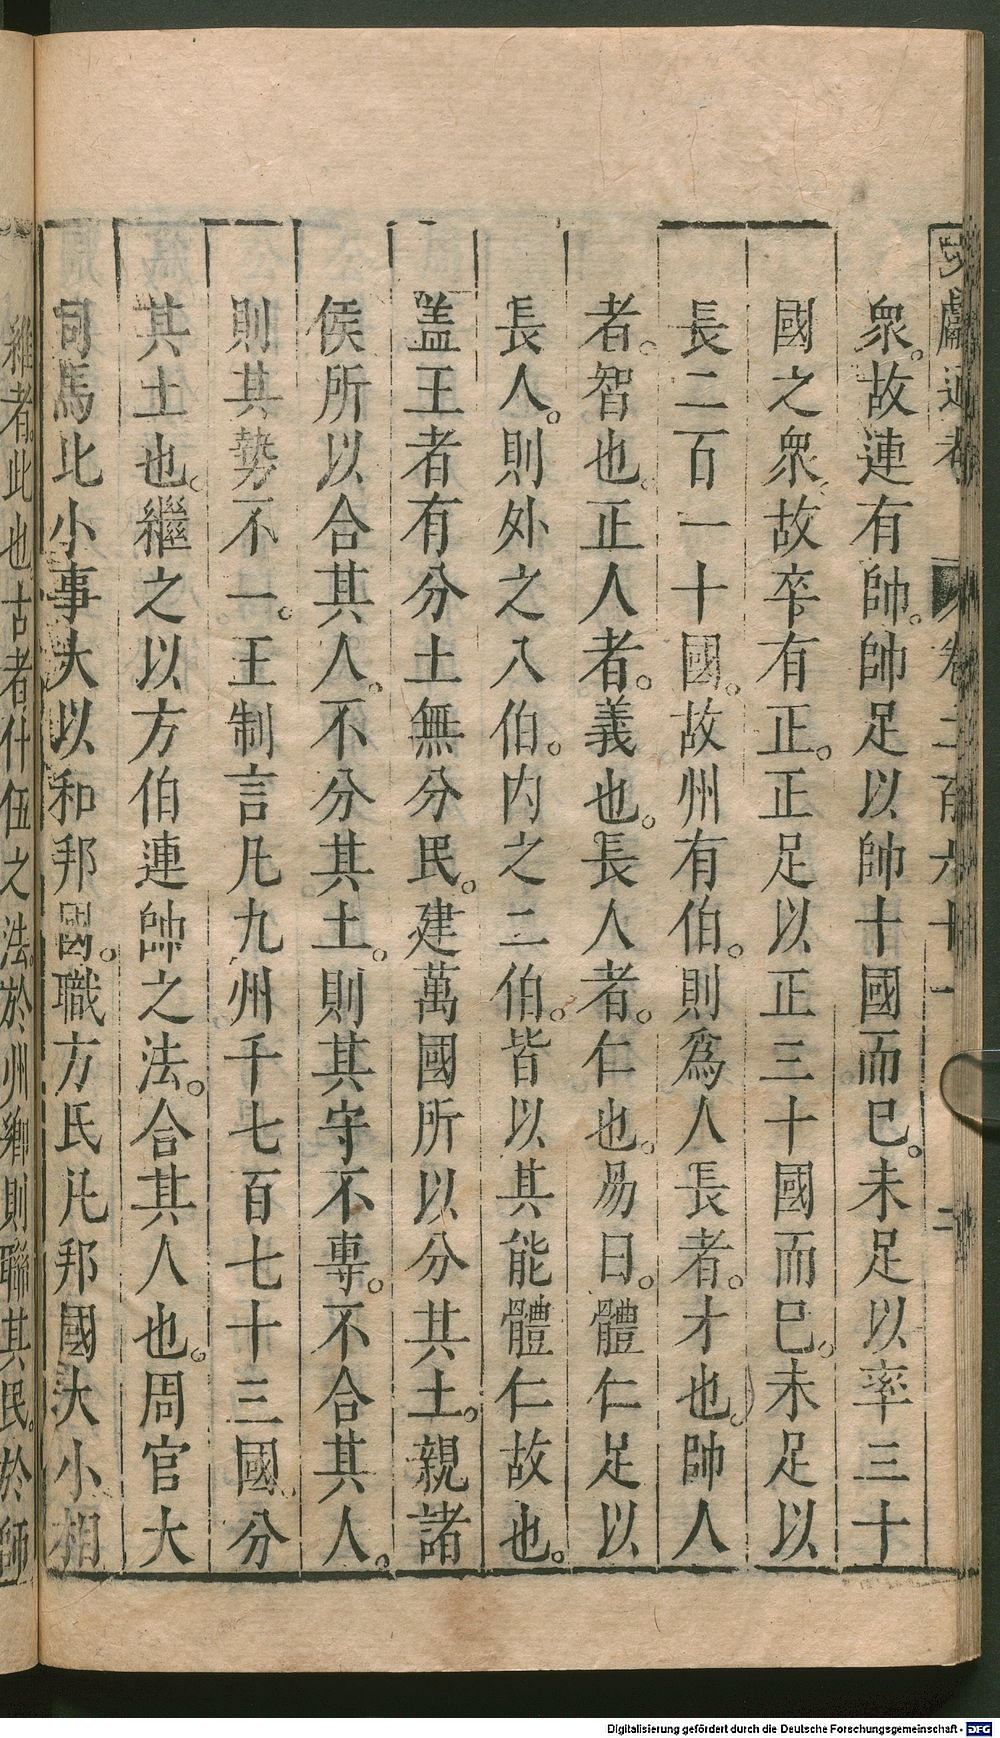 文獻通考 卷二百六十一 二
衆。故連有帥。帥足以帥十國而巳。未足以率三十
國之衆。故卒有正。正足以正三十國而巳。未足以
長二百一十國。故州有伯。則爲人長者。才也。帥人
者。智也。正人者。義也。長人者。仁也。易曰。體仁足以
長人。則外之八伯。內之二伯。皆以其能體仁故也。
蓋王者有分土無分民。建萬國所以分其土。親諸
侯所以合其人。不分其土。則其守不專。不合其人。
則其勢不一。王制言凡九州千七百七十三國。分
其土也。繼之以方伯連帥之法。合其人也。周官大
司馬比小事大以和邦國。職方氏凡邦國大小相
維者。此也。古者什伍之法。於州鄉則聯其民。於師
Digitalisierung gefördert durch die Deutsche Forschungsgemeinschaft - DFG